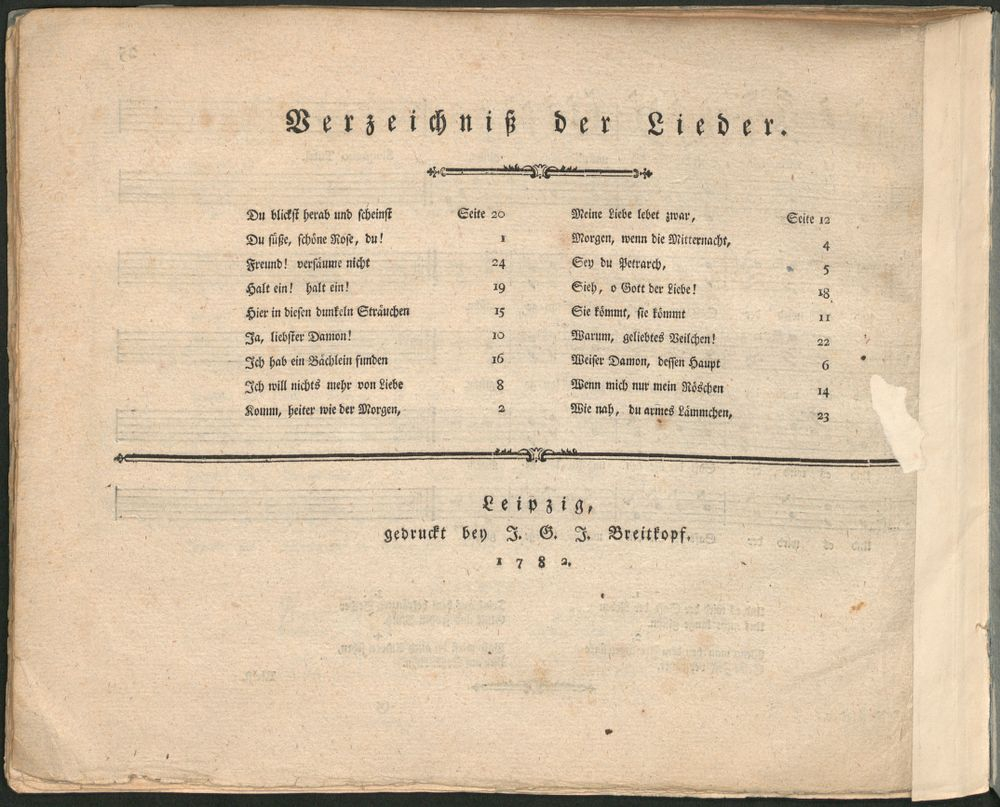 Verzeichniß der Lieder.
Du blickst herab und scheinst Seite 20
Du süße, schöne Rose, du! 1
Freund! versäume nicht 24
Halt ein! halt ein! 19
Hier in diesen dunkeln Sträuchen 15
Ja, liebster Damon! 10
Ich hab ein Bächlein funden 16
Ich will nichts mehr von Liebe 8
Komm, heiter wie der Morgen, 2
Meine Liebe lebet zwar, Seite 12
Morgen, wenn die Mitternacht, 4
Sey du Petrarch, 5
Sieh, o Gott der Liebe! 18
Sie kömmt, sie kömmt 11
Warum, geliebtes Veilchen! 22
Weiser Damon, dessen Haupt 6
Wenn mich nur mein Röschen 14
Wie nah, du armes Lämmchen, 23
Leipzig,
gedruckt bey J. G. J. Breitkopf.
1782.